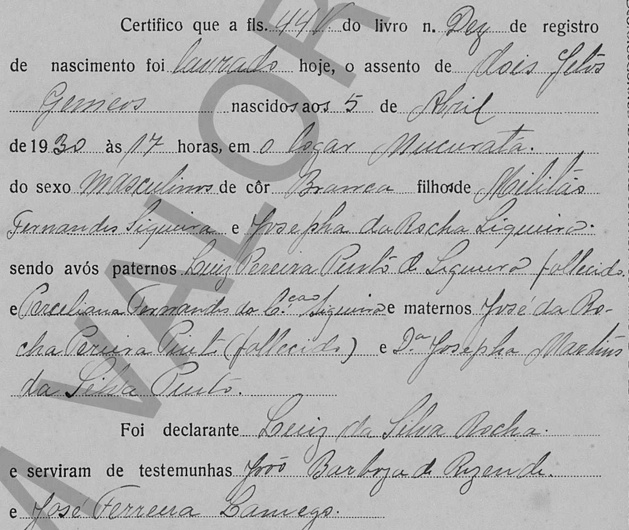 Certifico que a fls. 44V. do livro n. Dez de registro
de nascimento foi lavrado hoje, o assento de dois fetos
Gemeos nascidos aos 5 de Abril
de 1930 às 17 horas, em o logar Mucurata.
do sexo masculinos de côr Branca filhos de Militão
Fernandes Siqueira e Josepha da Rocha Siqueira.
sendo avós paternos Luiz Pereira Pinto de Siqueira fallecido
e Perceliana Fernandes da C.çao Siqueira e maternos José da Ro-
cha Pereira Pinto (fallecido) e D.a Josepha Martins
da Silva Pinto.
Foi declarante Luiz da Silva Rocha.
e serviram de testemunhas João Barboza de Rezende.
e José Ferreira Lamego.
A VALOR